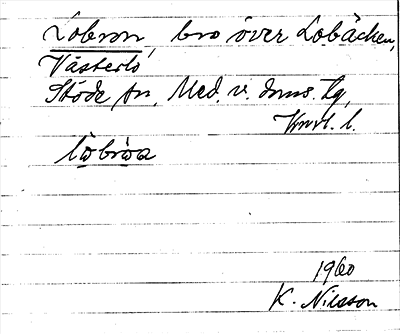 Lobron, bro över Lobäcken,
Västerlo
Stöde sn, Med. v. doms. tg,
l.
lobròa
1960
K. Nilsson